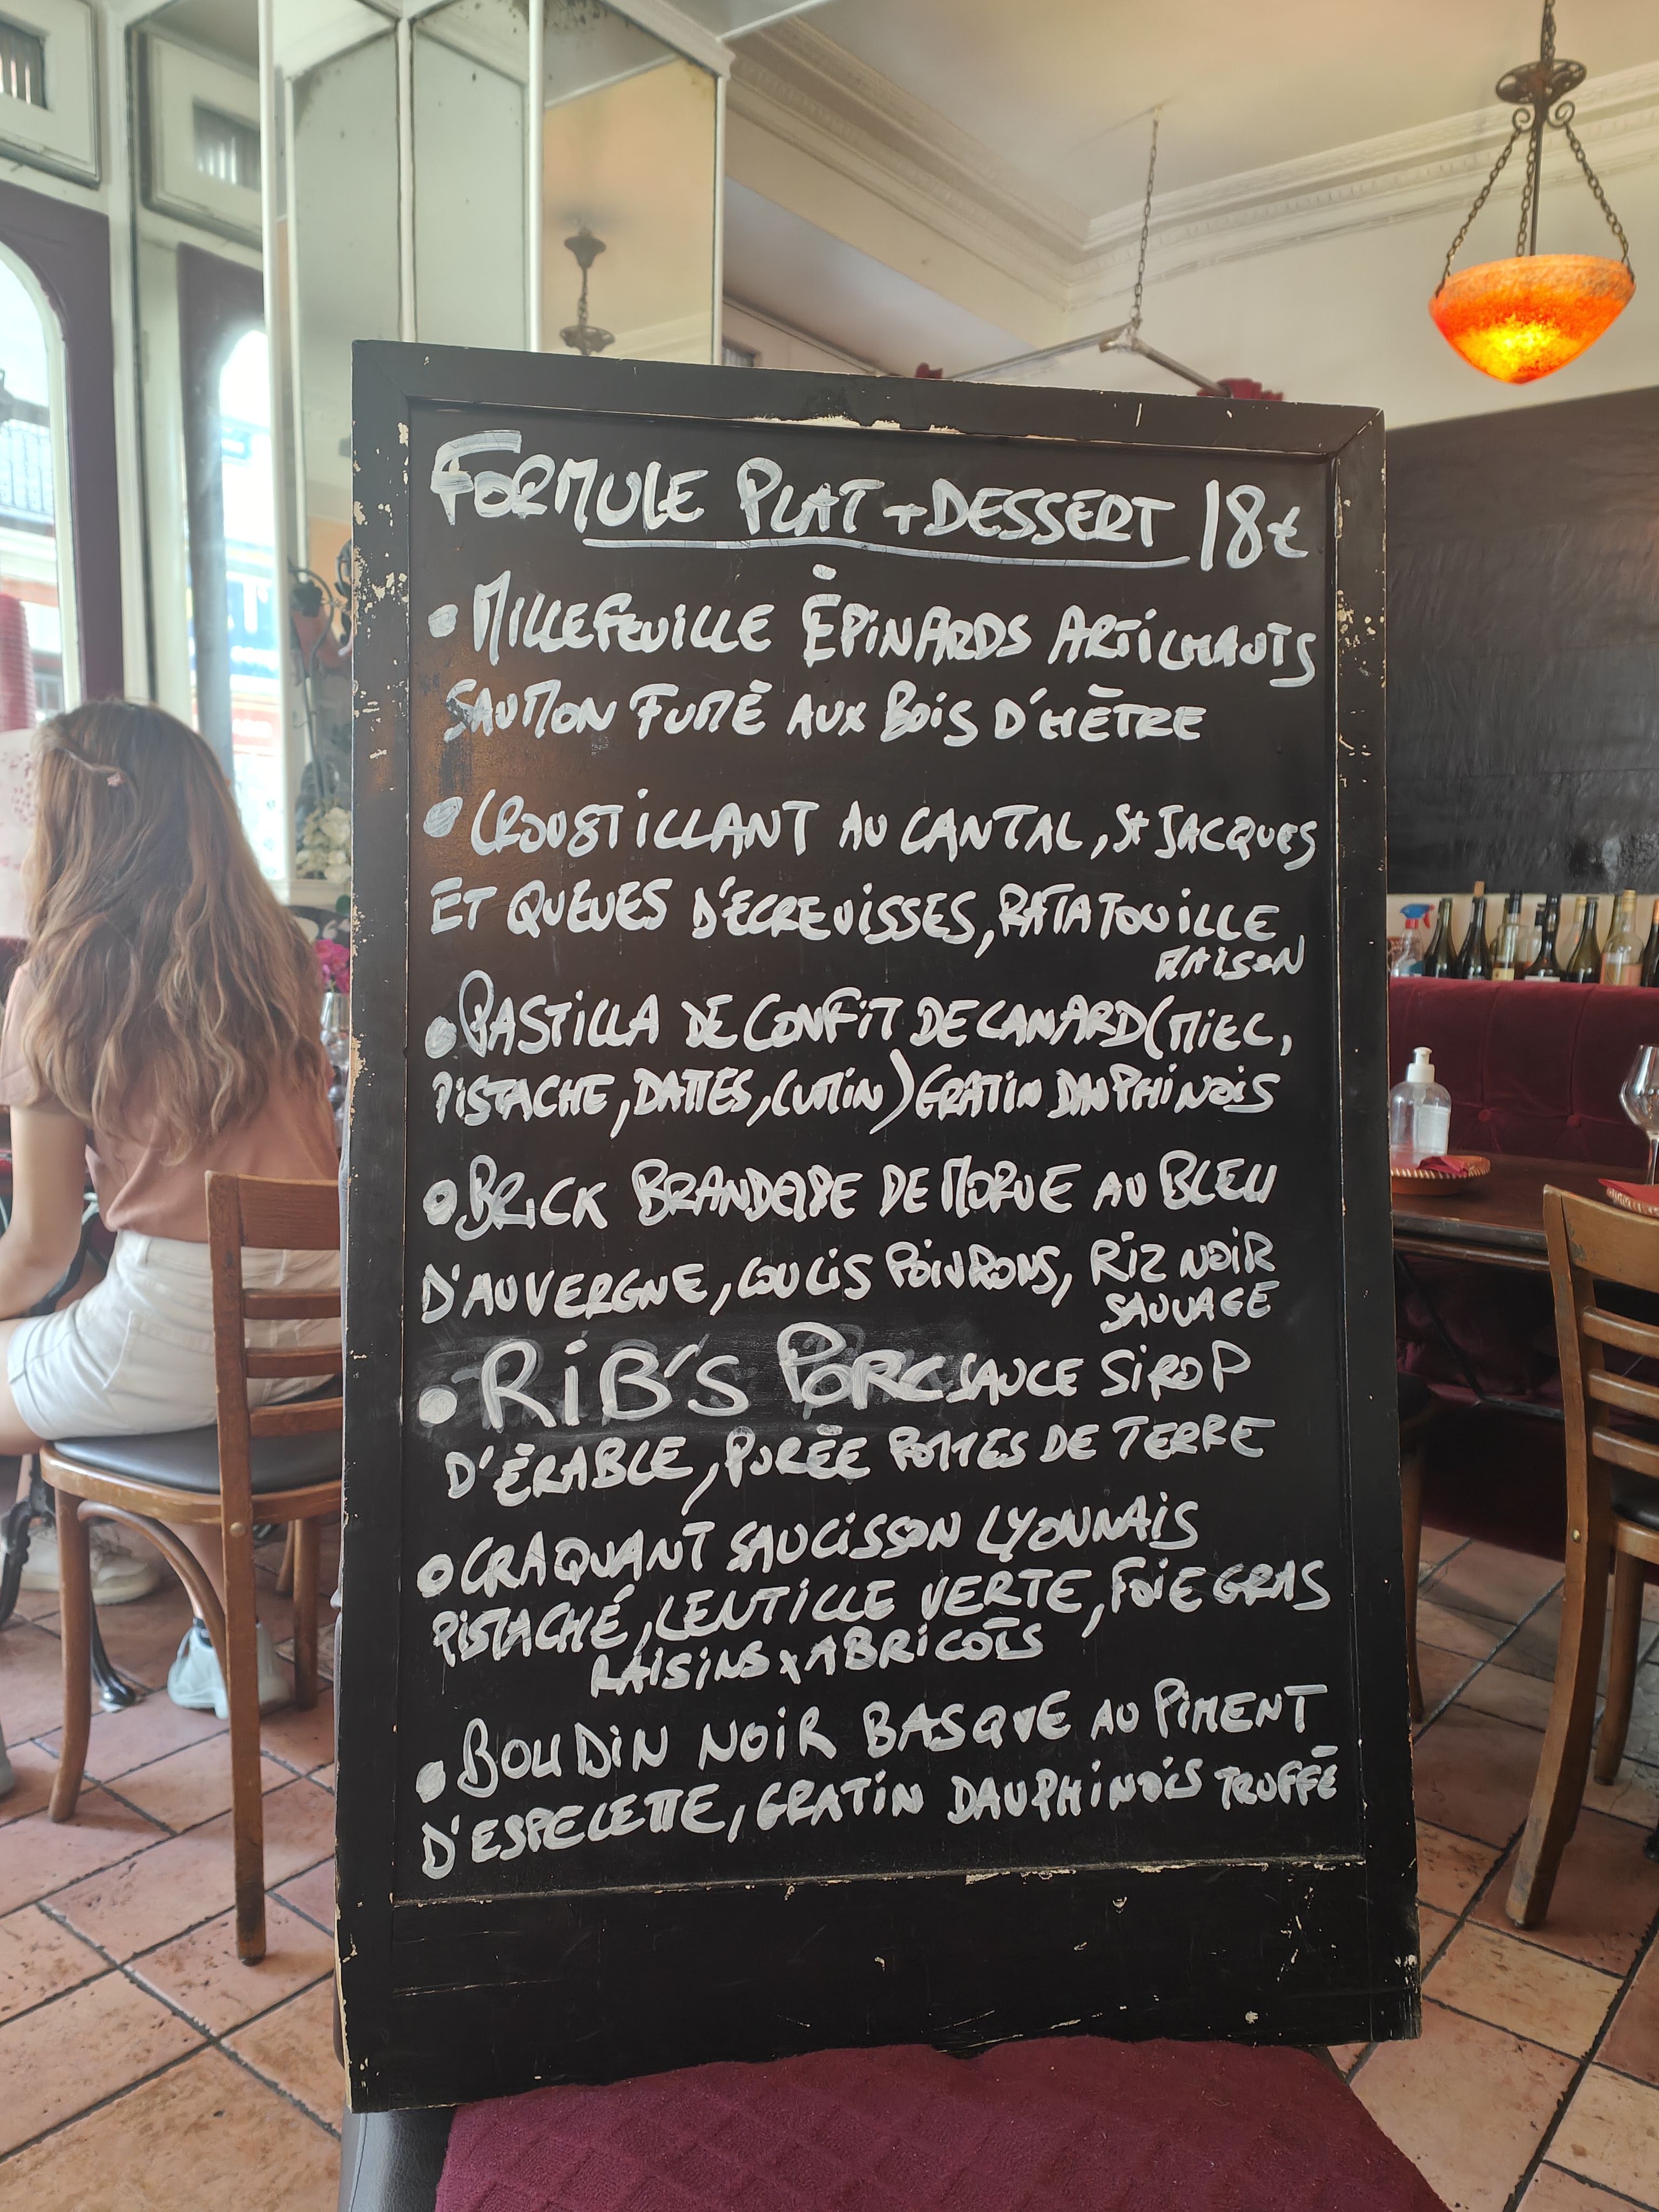 FORMULE PLAT + DESSERT 18€
• MILLEFEUILLE ÉPINARDS ARTICHAUTS
SAUMON FUMÉ AUX BOIS D'HÊTRE
• CROUSTILLANT AU CANTAL, St JACQUES
ET QUEUES D'ÉCREVISSES, RATATOUILLE
MAISON
• PASTILLA DE CONFIT DE CANARD (MIEL,
PISTACHE, DATTES, CUMIN) GRATIN DAUPHINOIS
• BRICK BRANDADE DE MORUE AU BLEU
D'AUVERGNE, COULIS POIVRONS, RIZ NOIR
SAUVAGE
• RIB'S PORC SAUCE SIROP
D'ÉRABLE, PURÉE POMMES DE TERRE
• CRAQUANT SAUCISSON LYONNAIS
PISTACHÉ, LENTILLE VERTE, FOIE GRAS
RAISINS x ABRICOTS
• BOUDIN NOIR BASQUE AU PIMENT
D'ESPELETTE, GRATIN DAUPHINOIS TRUFFÉ